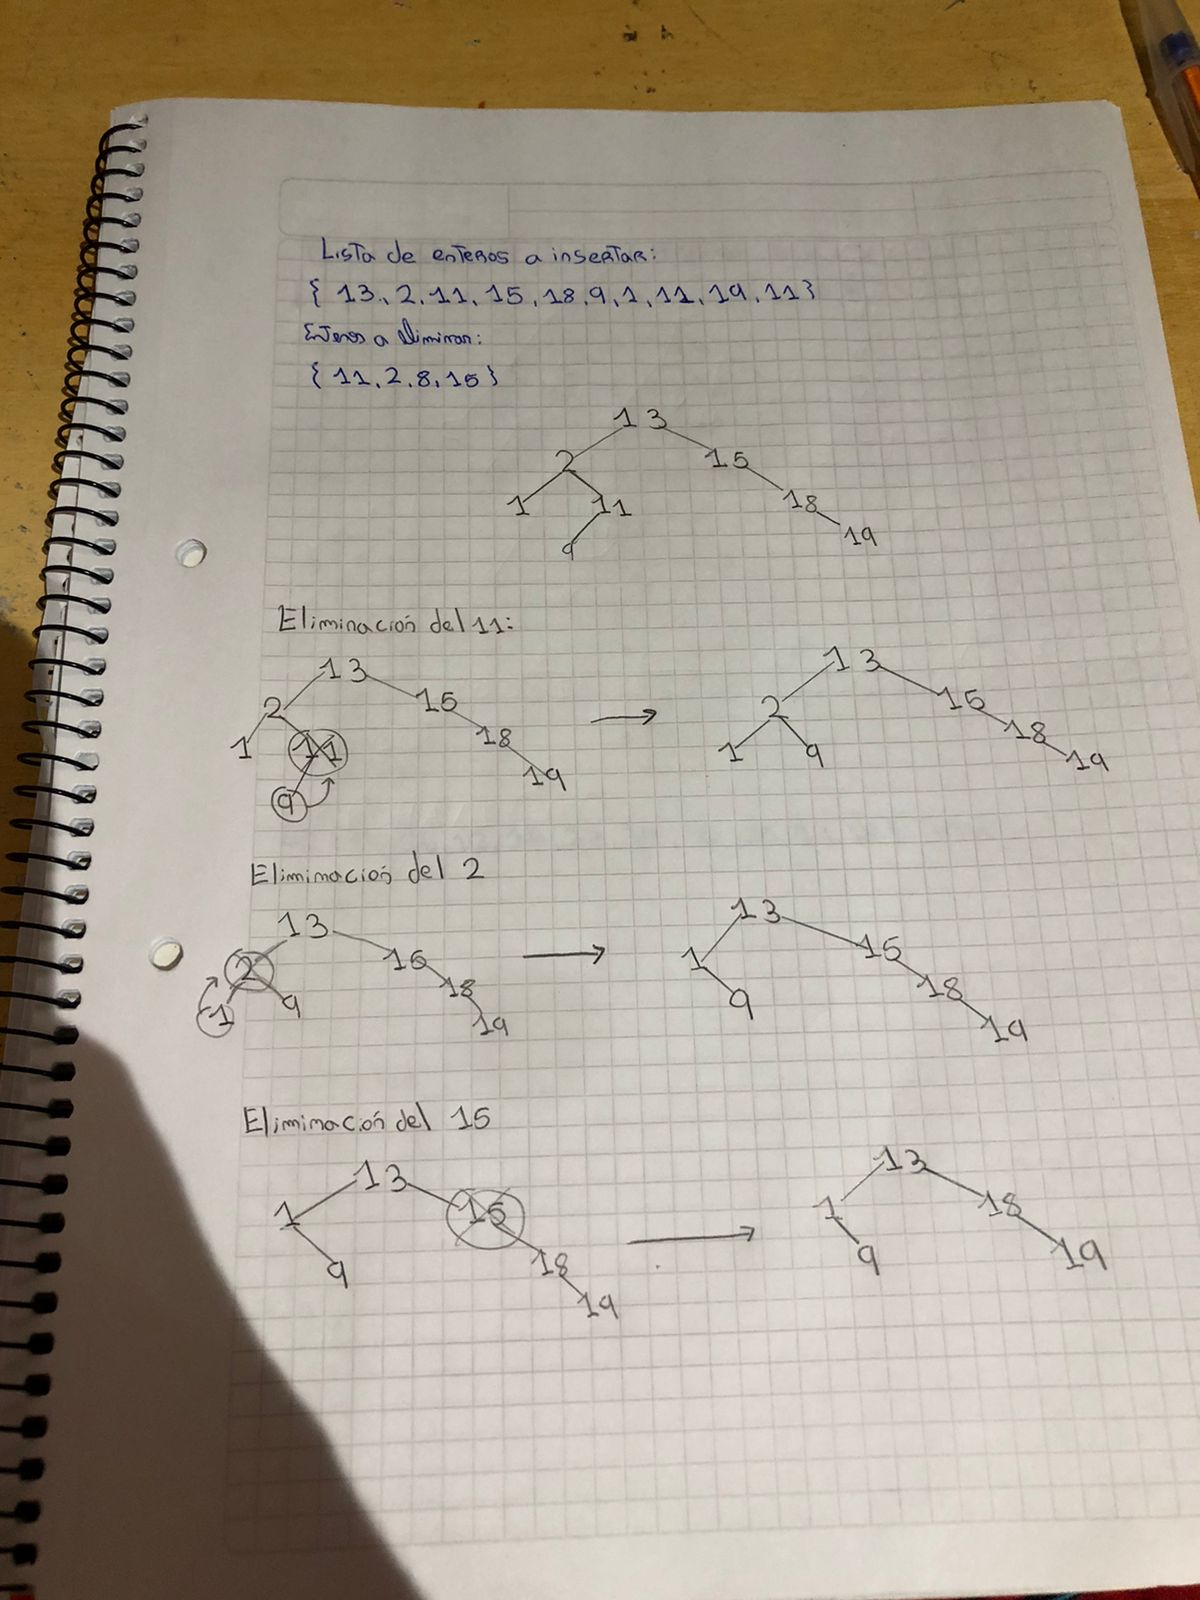 Lista de enteros a insertar:
{ 13, 2, 11, 15, 18, 9, 1, 11, 19, 11 }
Enteros a eliminar:
{ 11, 2, 8, 15 }
13
2 15
1 11 18
9 19
Eliminación del 11:
13 13
2 15 → 2 15
1 11 18 1 9 18
9 19 19
Eliminación del 2
13 13
2 15 → 1 15
1 9 18 9 18
19 19
Eliminación del 15
13 13
1 15 → 1 18
9 18 9 19
19